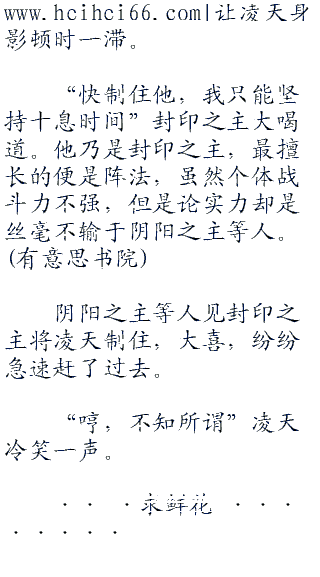 www.hcihci66.com|让凌天身
影顿时一滞。
“快制住他，我只能坚
持十息时间”封印之主大喝
道。他乃是封印之主，最擅
长的便是阵法，虽然个体战
斗力不强，但是论实力却是
丝毫不输于阴阳之主等人。
(有意思书院)
阴阳之主等人见封印之
主将凌天制住，大喜，纷纷
急速赶了过去。
“哼，不知所谓”凌天
冷笑一声。
· · ·求鲜花 · · ·
· · · · · ·